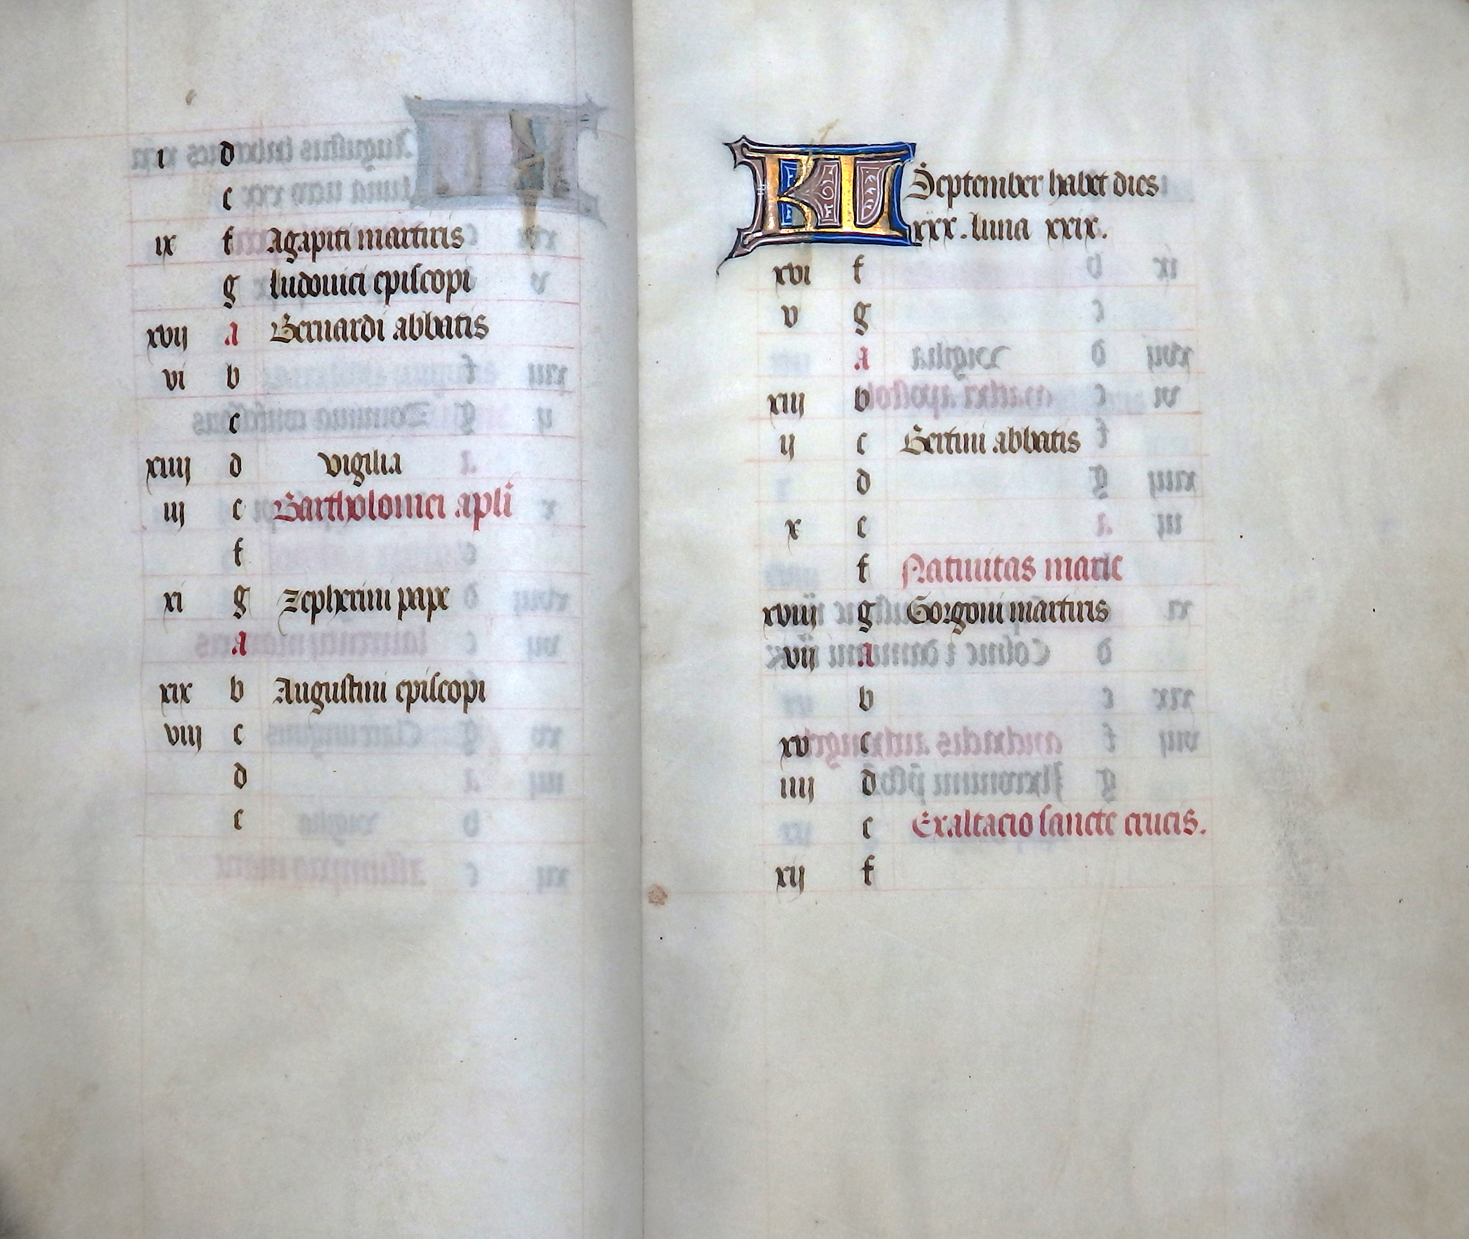 i d
e
ix f Agapiti martiris
g ludouici episcopi
xvij a Bernardi abbatis
vi b
c
xiiij d vigilia
iij e Bartholomei apli
f
xi g Zepherini pape
a
xix b Augustini episcopi
viij c
d
e
KL September habet dies
xxx. luna xxix.
xvi f
v g
a
xiij b
ij c Bertini abbatis
d
x e
f Natiuitas marie
xviij g Gorgoni martiris
vij a
b
xv c
iiij d
e Exaltacio sancte crucis.
xij f